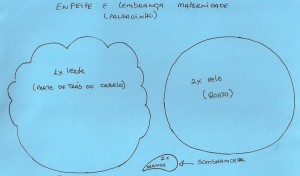 ENFEITE E LEMBRANÇA MATERNIDADE
(PALHACINHO)
1x VERDE
(PARTE DE TRÁS DO CABELO)
2x PELE
(ROSTO)
2x
BRANCO
SOMBRANCELHA